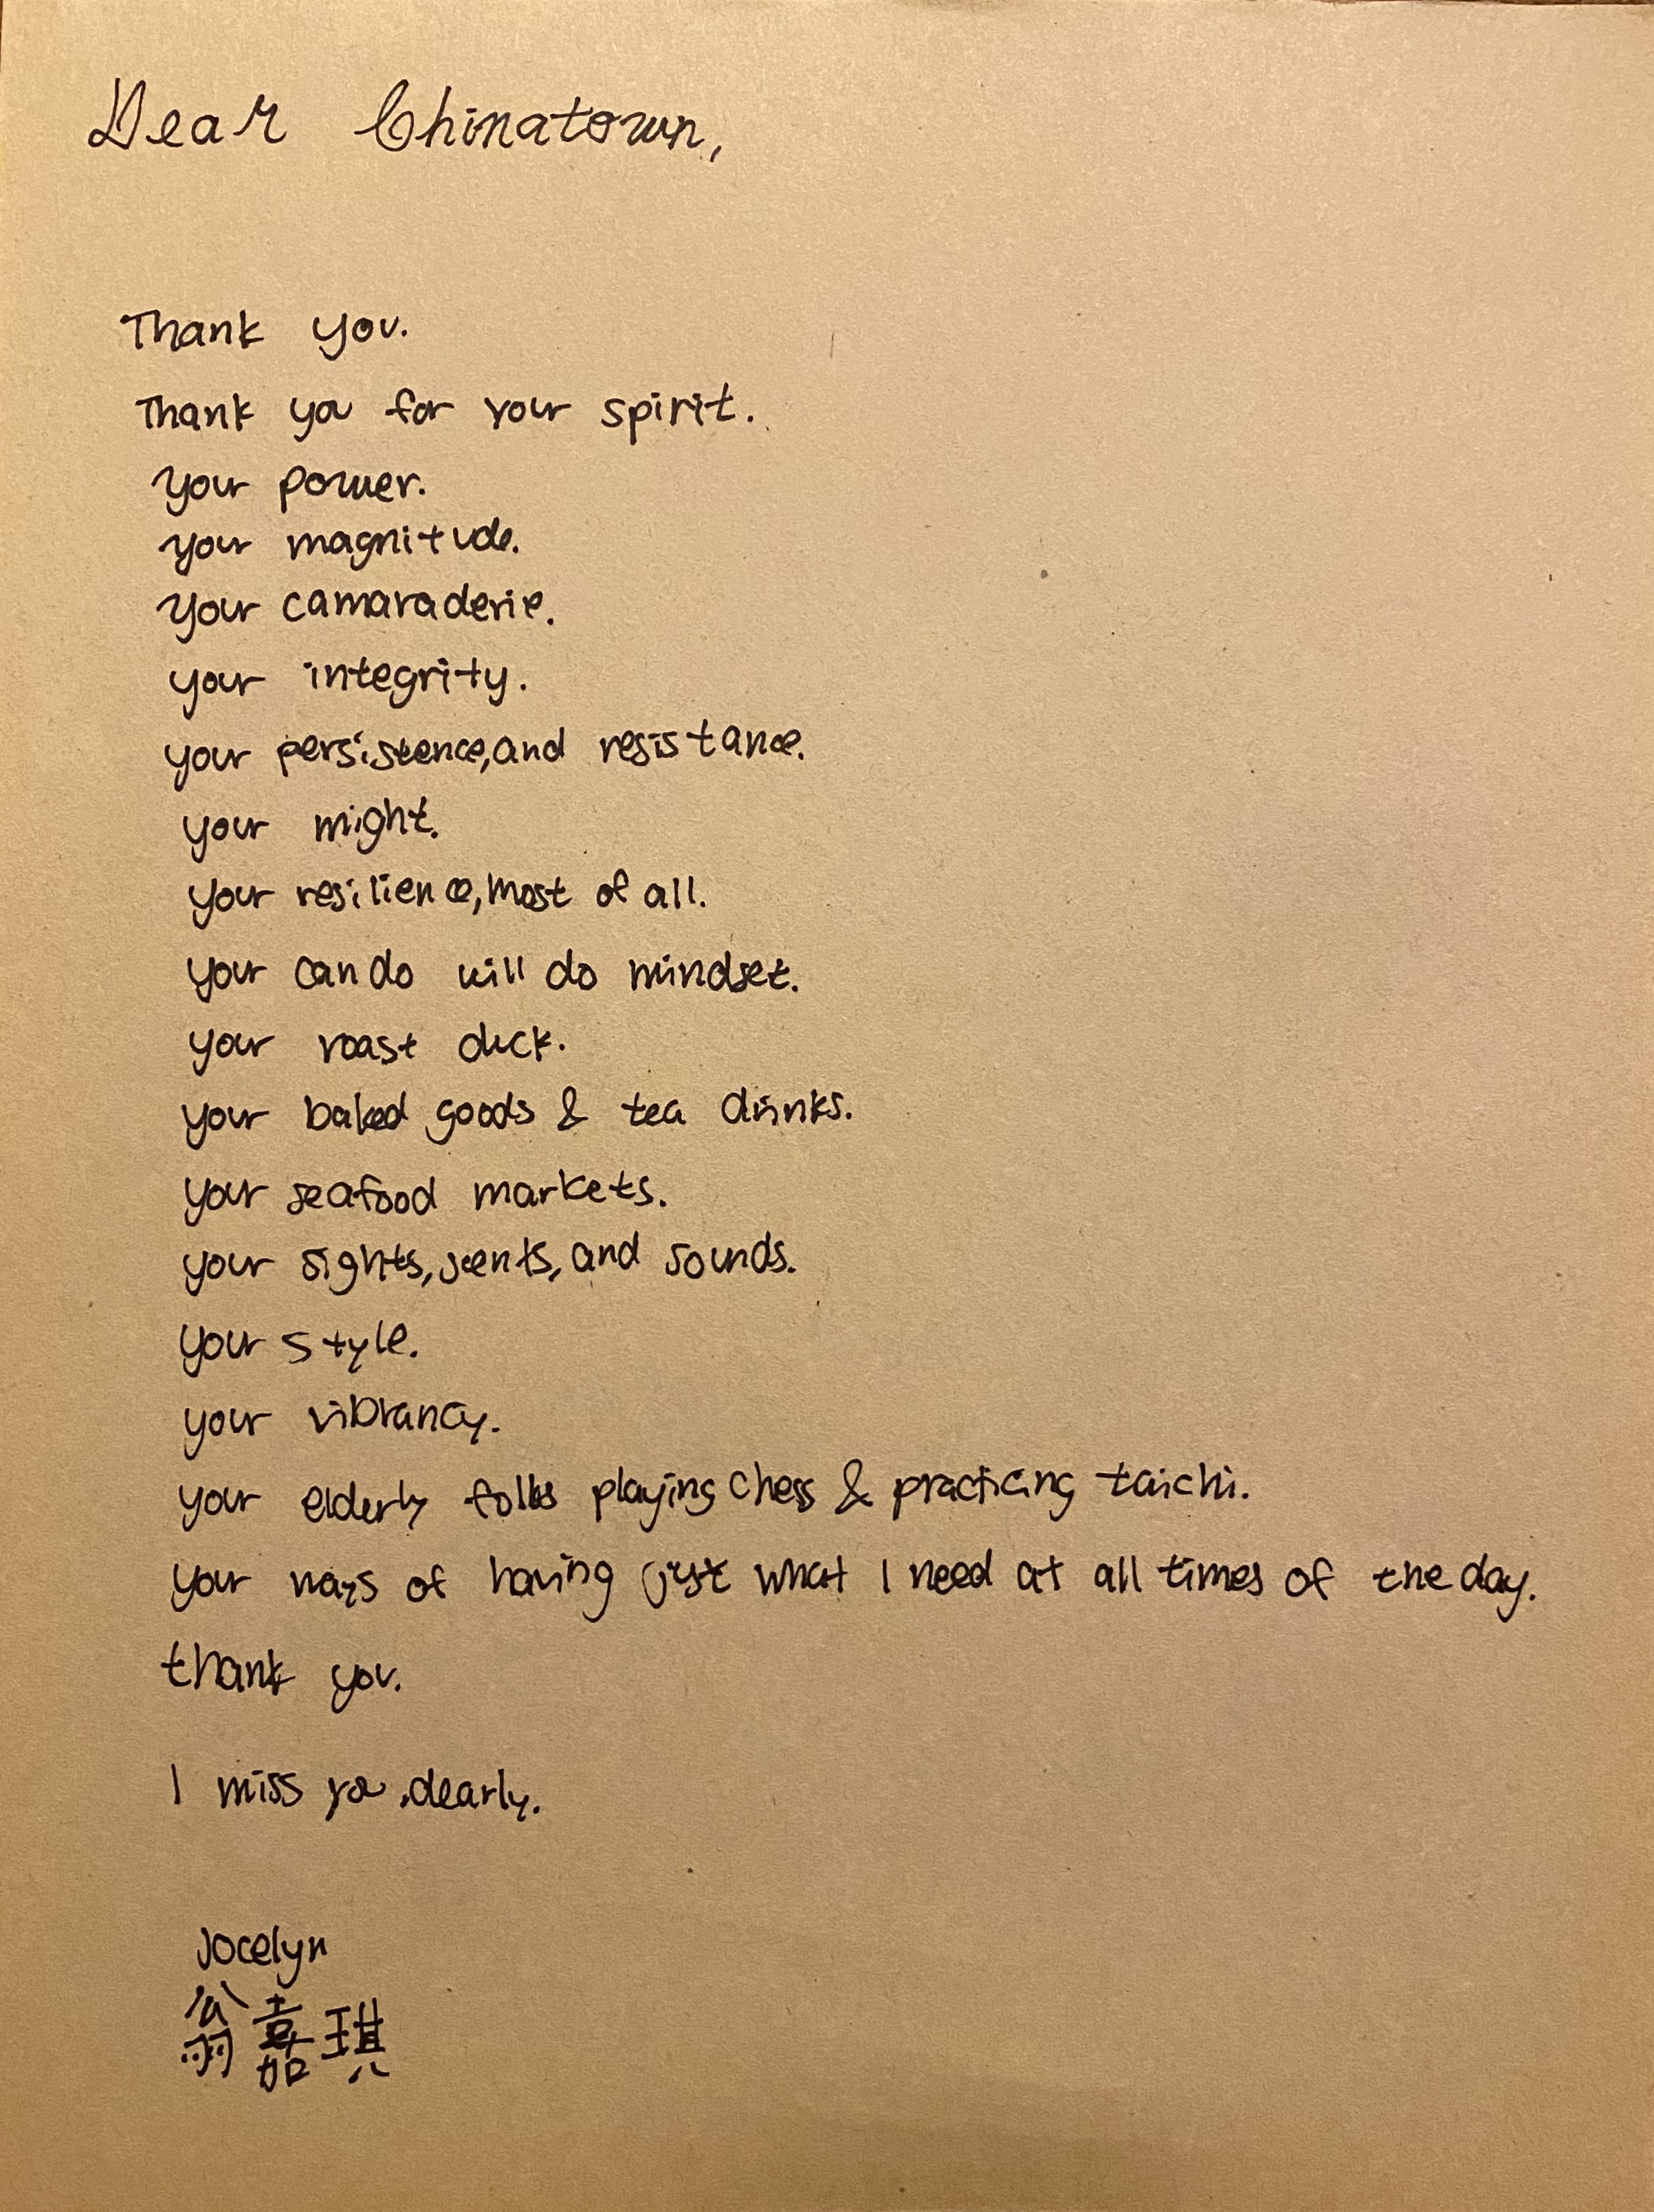 Dear Chinatown,
Thank you.
Thank you for your spirit.
your power.
your magnitude.
your camaraderie.
your integrity.
your persistence, and resistance.
your might.
your resilience, most of all.
your can do will do mindset.
your roast duck.
your baked goods & tea drinks.
your seafood markets.
your sights, scents, and sounds.
your style.
your vibrancy.
your elderly folks playing chess & practicing taichi.
your ways of having just what I need at all times of the day.
thank you.
I miss you, dearly.
Jocelyn
翁嘉琪